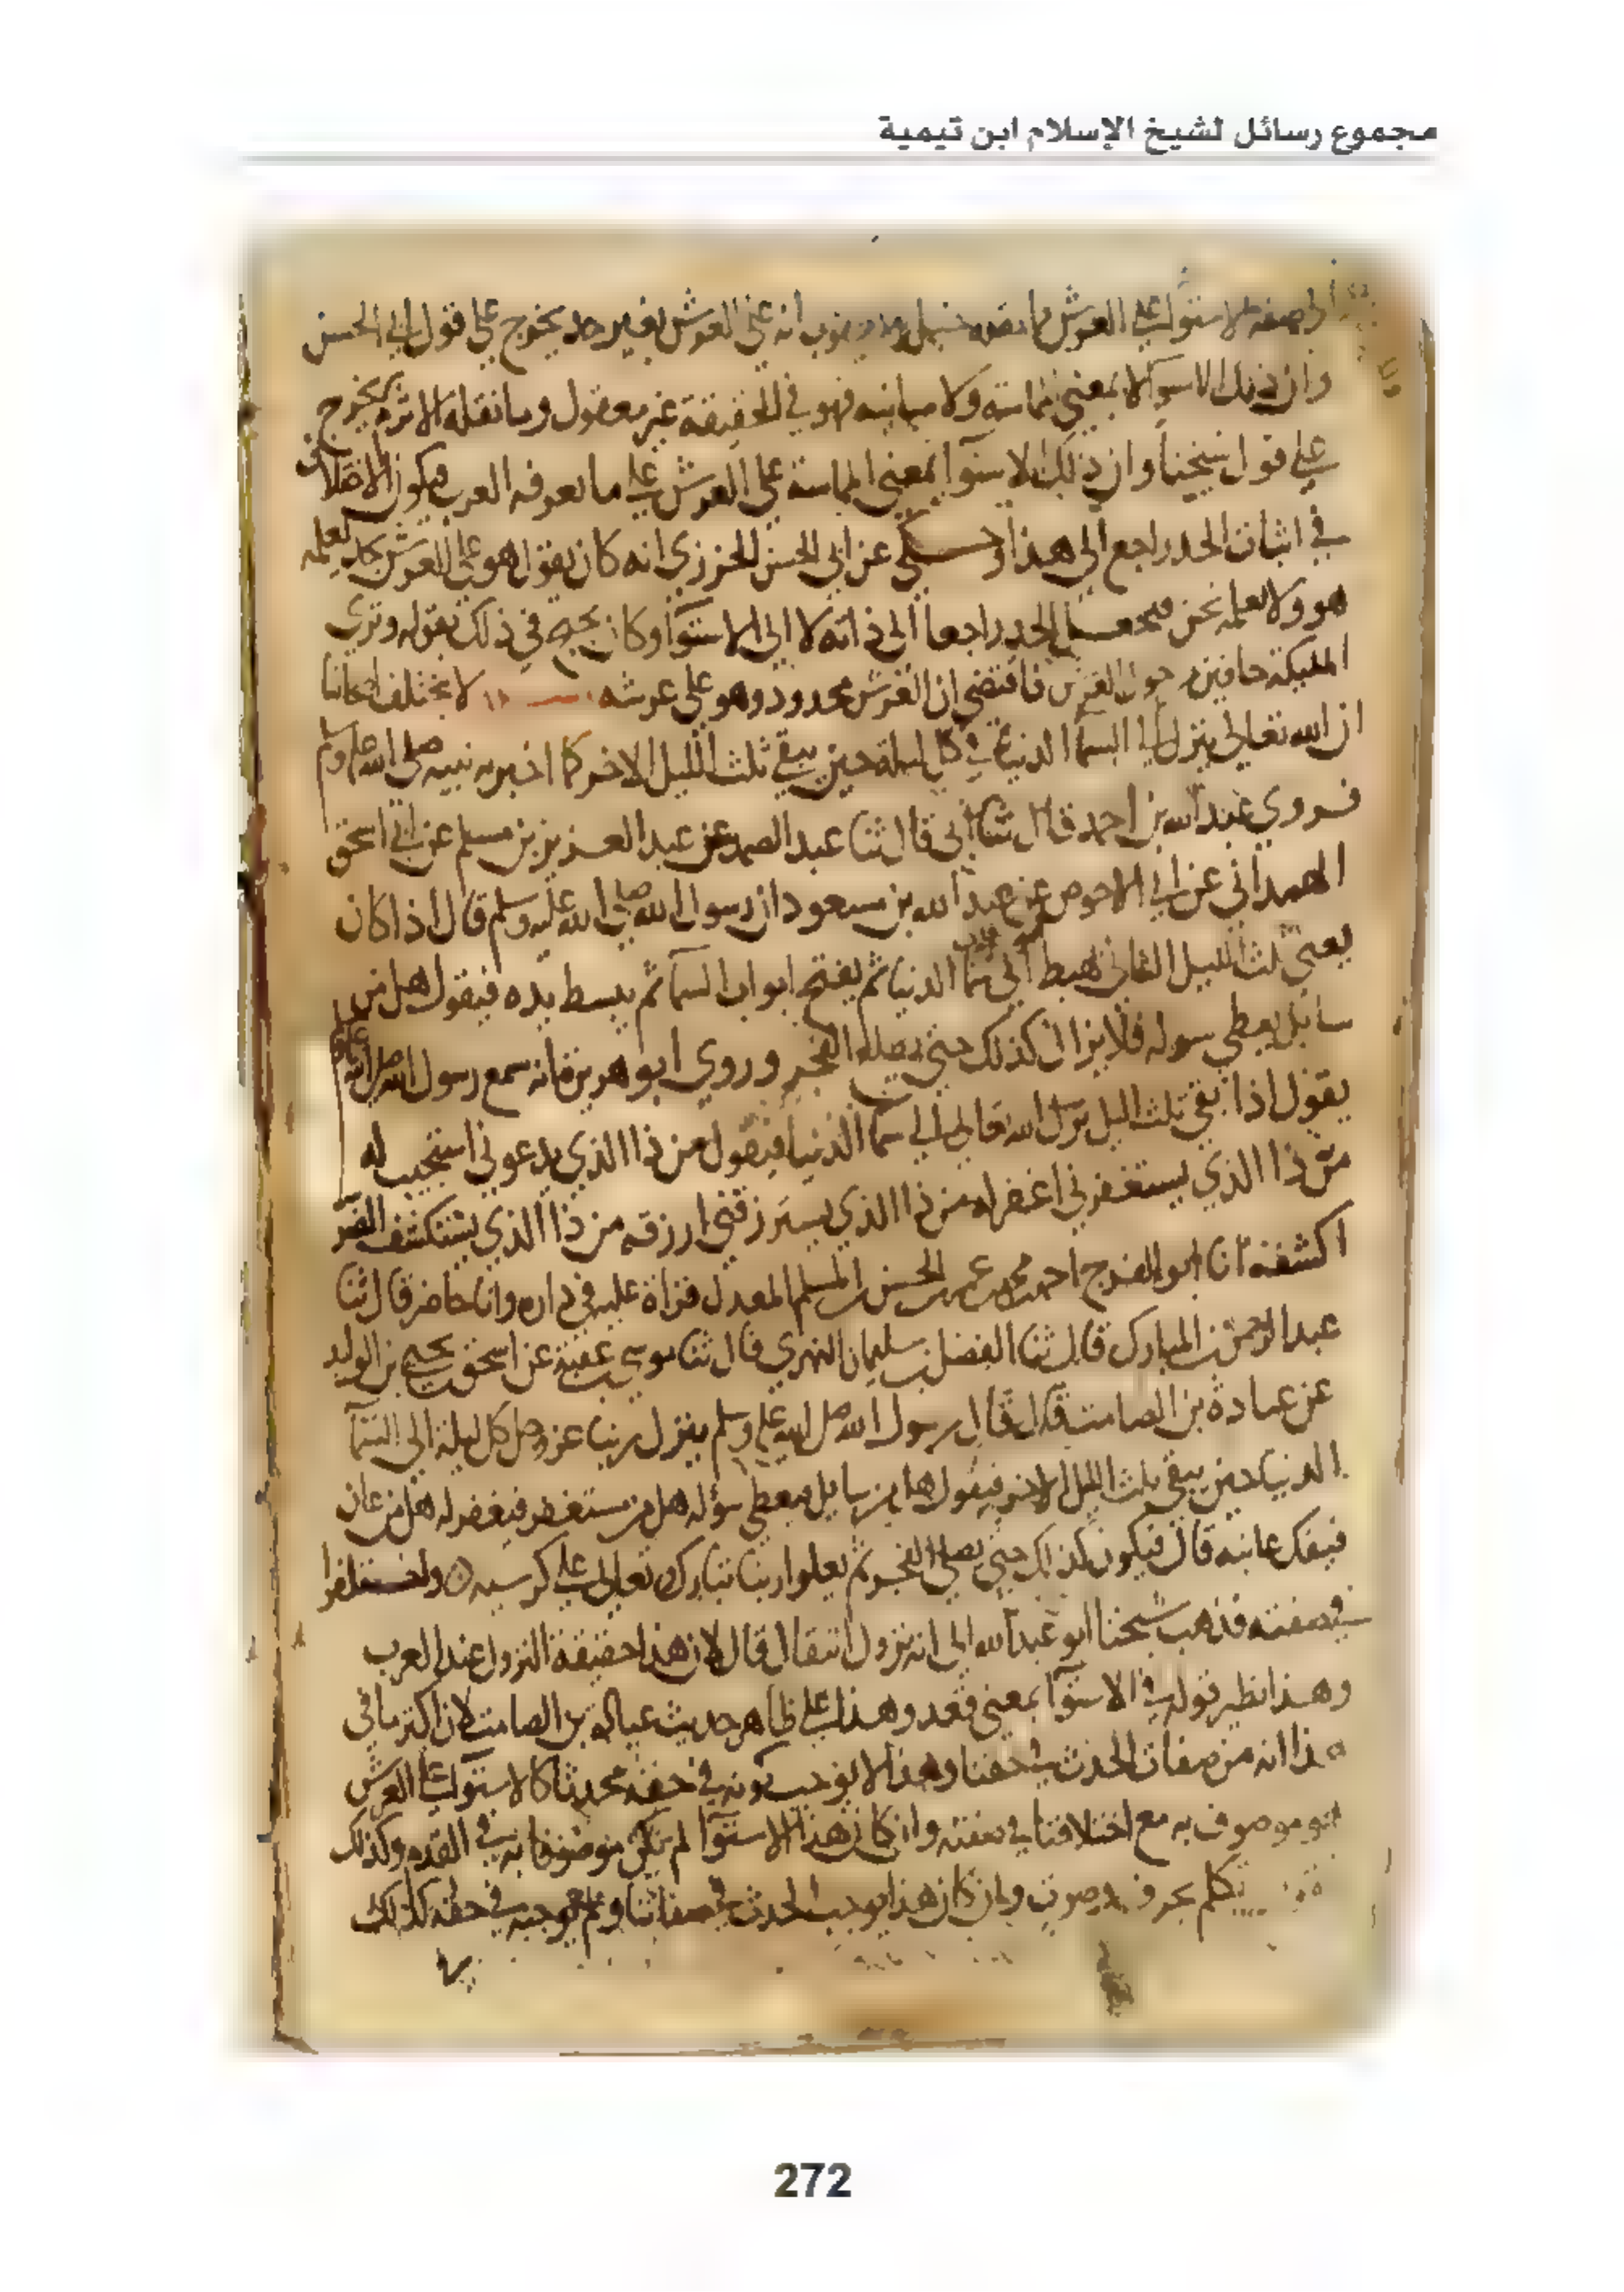 مجموع رسائل لشيخ الإسلام ابن تيمية
الاستواء على العرش انه على العرش بغير حد يخرج على قول ابي الحسن
وان ذلك الاستوا لا بمعنى مماسة ولا مباينه فهو في الحقيقة غير معقول وما نقله الاثرم يخرج
على قول شيخنا وان ذلك الاستوآ بمعنى المماسة على العرش على ما تعرفه العرب فيكون
في اثبات الحد راجع الى هذا وحكى عن ابي الحسن الخرزي انه كان يقول هو على العرش بحد يعلمه
هو ولا نعلمه نحن فيجعل الحد راجعا الى ذاته لا الى الاستوآ وكان يحتج في ذلك بقوله وترى
المليكة حافين من حول العرش فاقتضى ان العرش محدود وهو على عرشه لا يختلف اصحابنا
ان الله تعالى ينزل الى السمآ الدنيا في كل ليلة حين يبقى ثلث الليل الاخر كما اخبر به نبيه صلى الله عليه وسلم
فروي عبد الله بن احمد قال ثنا ابي قال ثنا عبد الصمد عن عبد العزيز بن مسلم عن ابي اسحق
الهمداني عن ابي الاحوص عن عبد الله بن مسعود ان رسول الله صلى الله عليه وسلم قال اذا كان
يعني ثلث الليل هبط الى سما الدنيا ثم يفتح ابواب السمآ ثم يبسط يده فيقول هل من
سايل يعطي سوله فلا يزال كذلك حتى الفجر وروي ابو هريرة انه سمع رسول الله صلى الله عليه وسلم
يقول اذا بقي ثلث الليل نزل الله تعالى الى سمآ الدنيا فيقول من ذا الذي يدعوني استجيب له
من ذا الذي يستغفرني اغفر له من ذا الذي يسترزقني ارزقه من ذا الذي يستكشف الضر
اكشفه انا ابو الفرج احمد بن محمد بن عمر بن الحسن بن المسلم المعدل قراة عليه في داره وانا حاضر قال ثنا
عبد الرحمن بن المبارك قال ثنا الفضل بن سليمان النميري قال ثنا موسى بن عقبة عن اسحق بن يحيى بن الوليد
عن عبادة بن الصامت قال قال رسول الله صلى الله عليه وسلم ينزل ربنا عز وجل كل ليلة الى السمآ
الدنيا حين يبقى ثلث الليل الاخر فيقول هل من سايل فيعطي سؤله هل من مستغفر فيغفر له هل من عان
فيفك عانيه قال فيكون كذلك حتى يصلى الفجر ثم يعلوا ربنا تبارك وتعالى على كرسيه واختلفوا
في صفته فذهب شيخنا ابو عبد الله الى انه نزول انتقال قال لان هذا حقيقة النزول عند العرب
وهذا نظير قوله في الاستوآ بمعنى قعد وهذا على ظاهر حديث عبادة بن الصامت لان اكثر ما في
هذا انه من صفات الحدث في حقنا وهذا لا يوجب كونه في حقه محدثا كالاستوآ على العرش
هو موصوف به مع اختلافنا في صفته وان كان هذا الاستوآ لم يكن موصوفا به في القدم وكذلك
تكلم بحرف وصوت وان كان هذا يوجب الحدث في صفاتنا ولم يوجبه في حقه كذلك
272